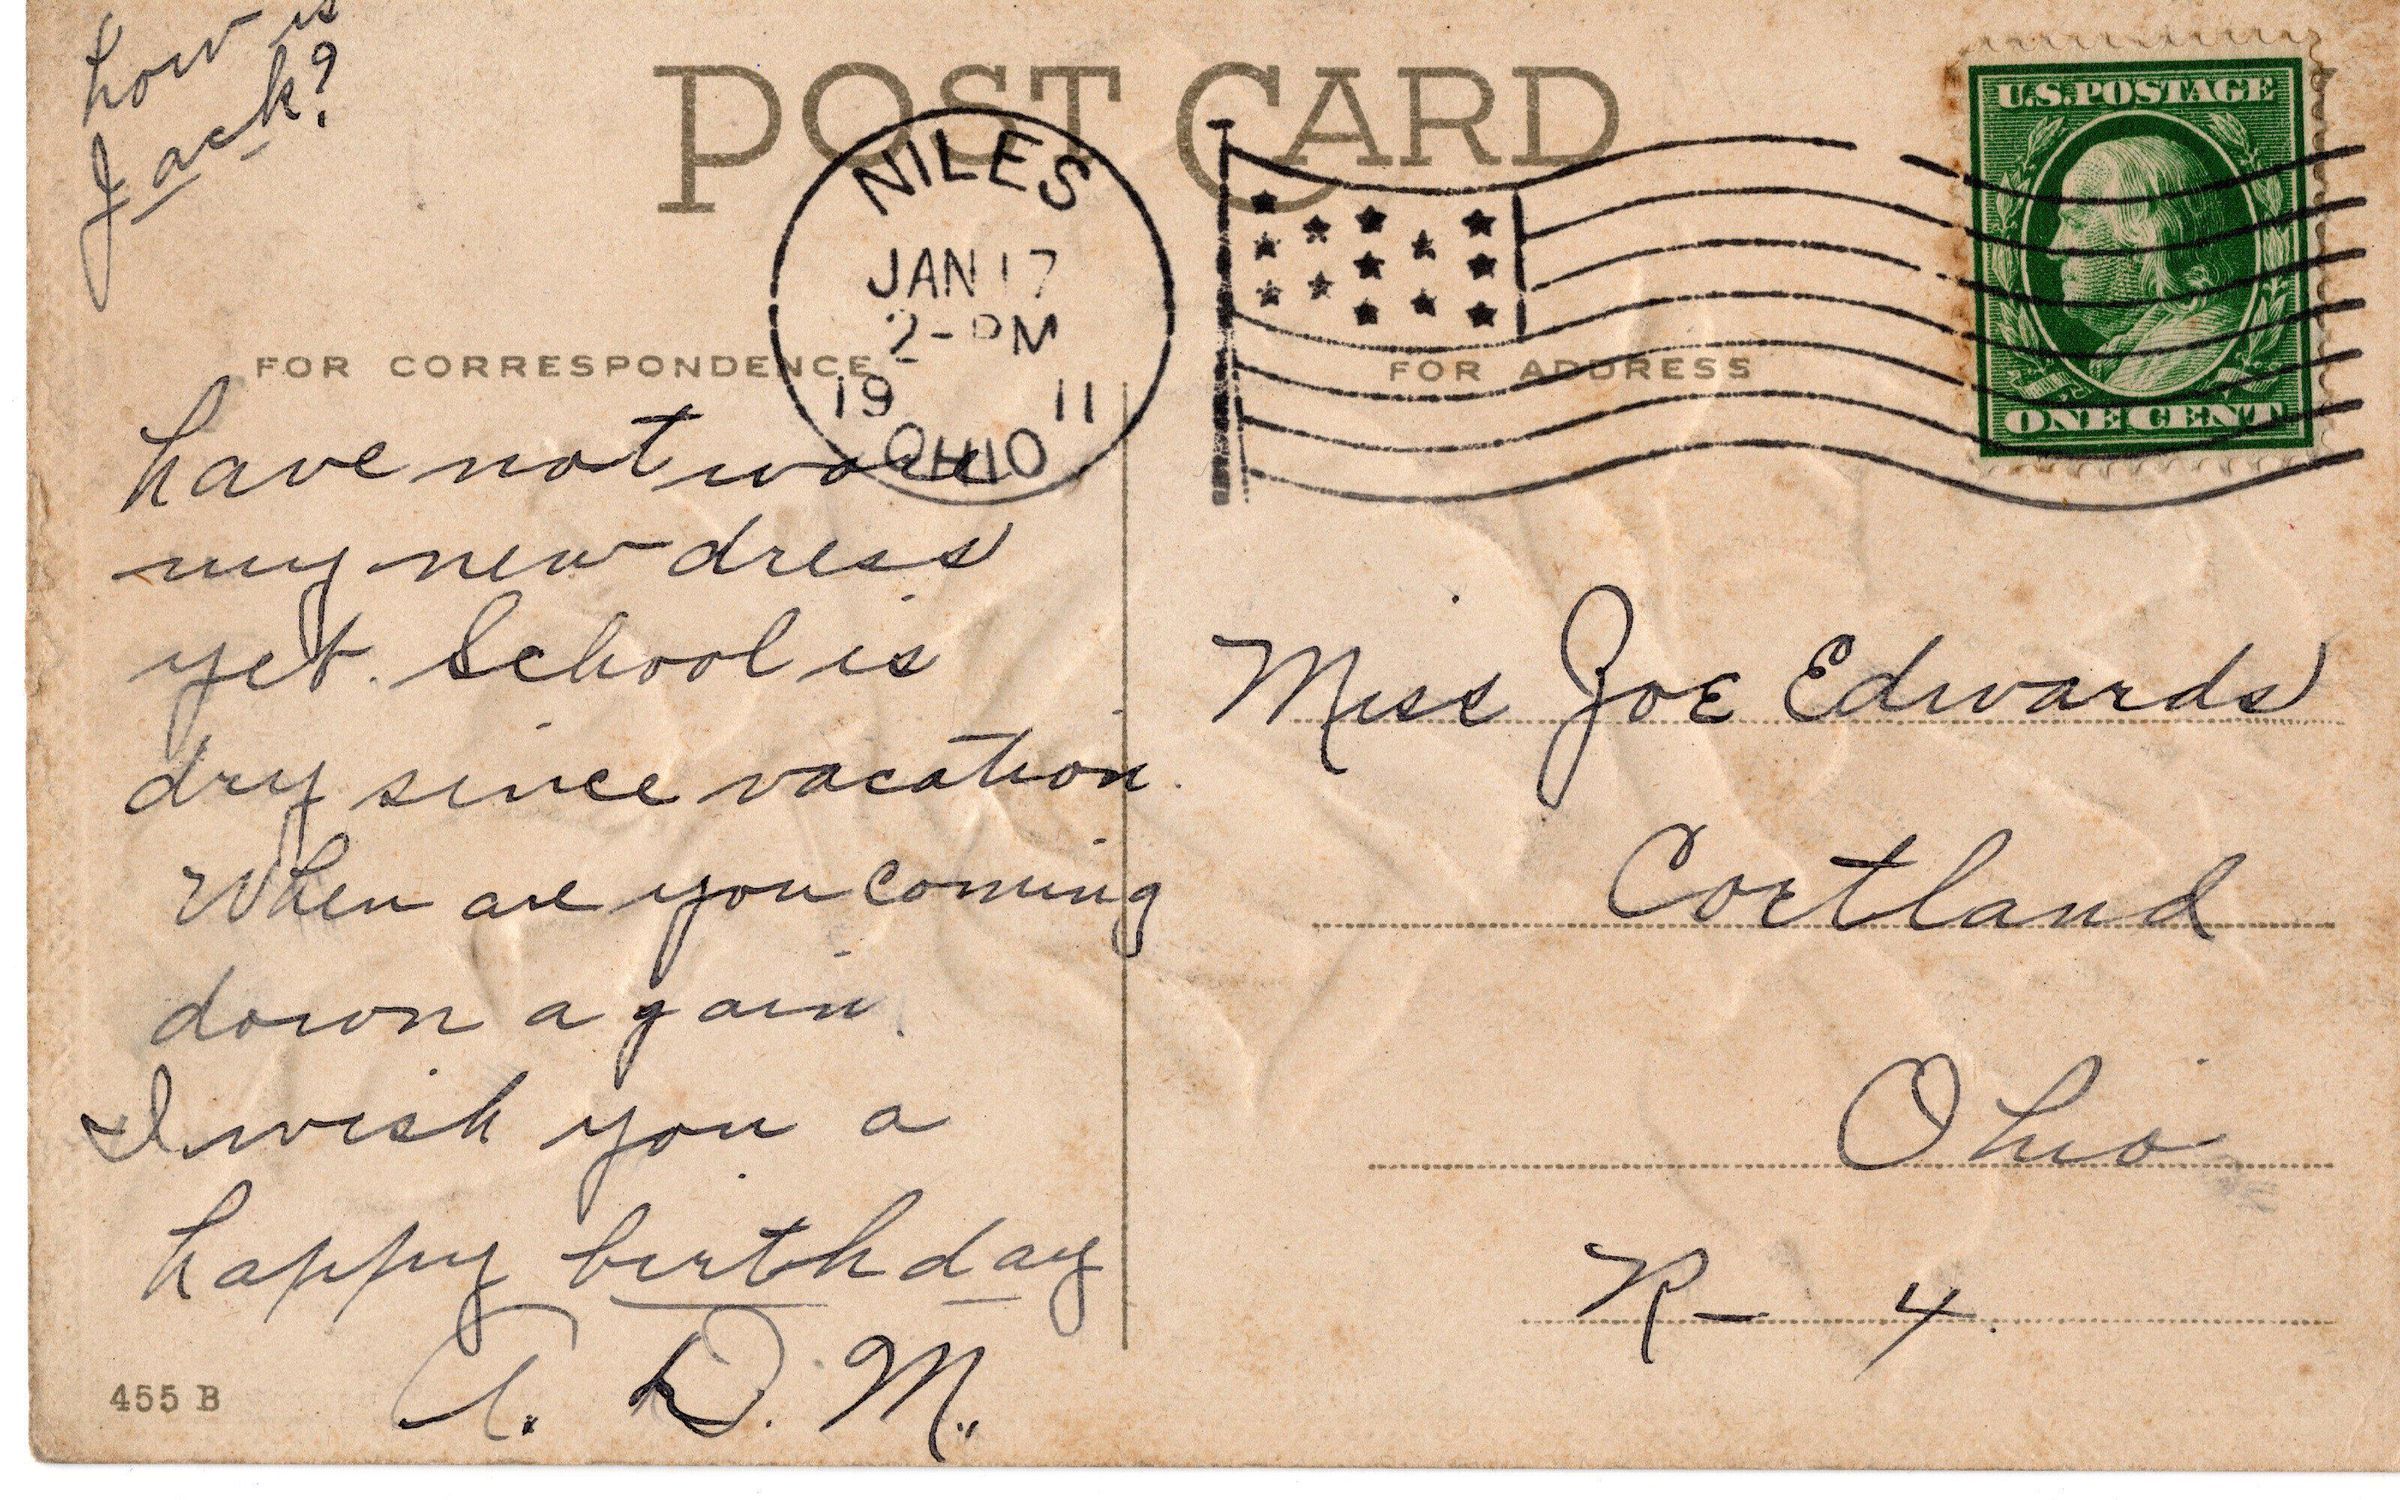 how is
Jack?
POST CARD
NILES
JAN 17
2-PM
19 11
OHIO
U.S. POSTAGE
ONE CENT
FOR CORRESPONDENCE
FOR ADDRESS
have not wore
my new dress
yet. School is
dry since vacation.
When are you coming
down again.
I wish you a
happy birthday
D. M.
455 B
Miss Joe Edwards
Cortland
Ohio
R- 4.